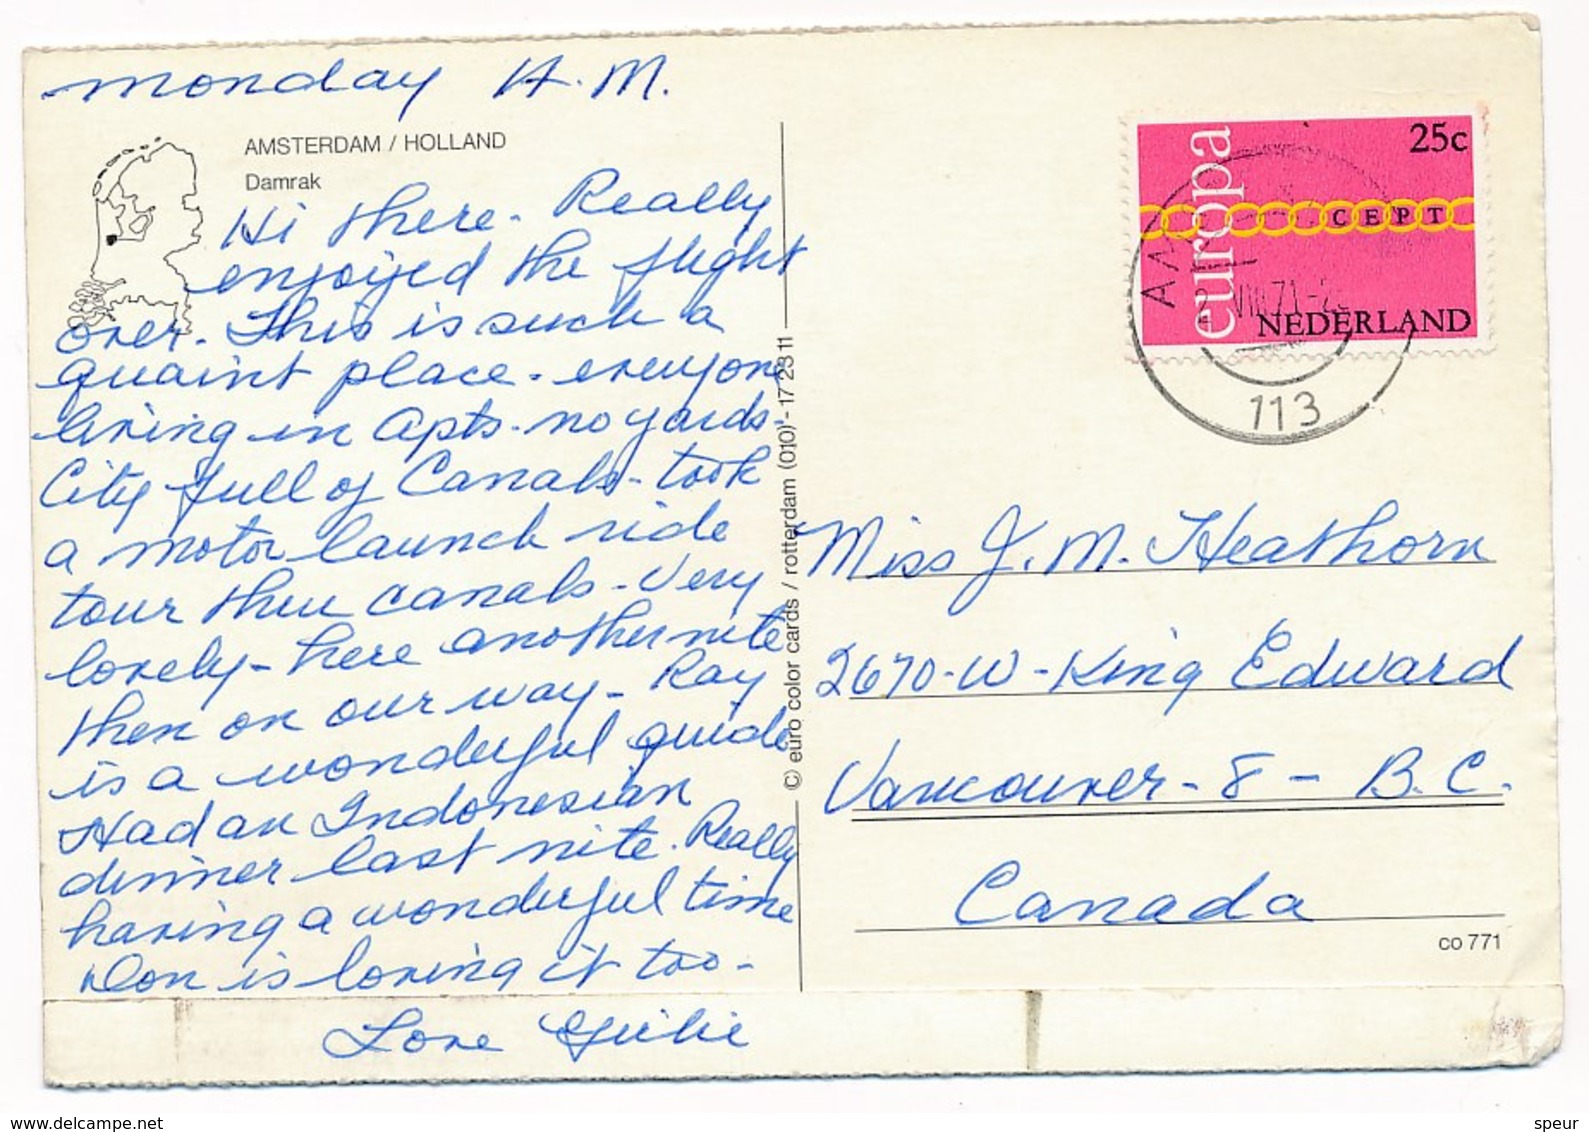 monday A.M.
AMSTERDAM / HOLLAND
Damrak
Hi there - Really
enjoyed the flight
over. This is such a
quaint place - everyone
living in Apts - no yards -
City full of Canals - took
a motor launch ride
tour thru canals - Very
lovely - here another nite
then on our way - Ray
is a wonderful guide
Had an Indonesian
dinner last nite. Really
having a wonderful time
Don is loving it too -
Love
© euro color cards / rotterdam (010) - 17 23 11
europa
25c
CEPT
NEDERLAND
VIII 71
113
Miss J. M. Heathorn
2670 - W - King Edward
Vancouver - 8 - B.C.
Canada
co 771
www.delcampe.net
speur